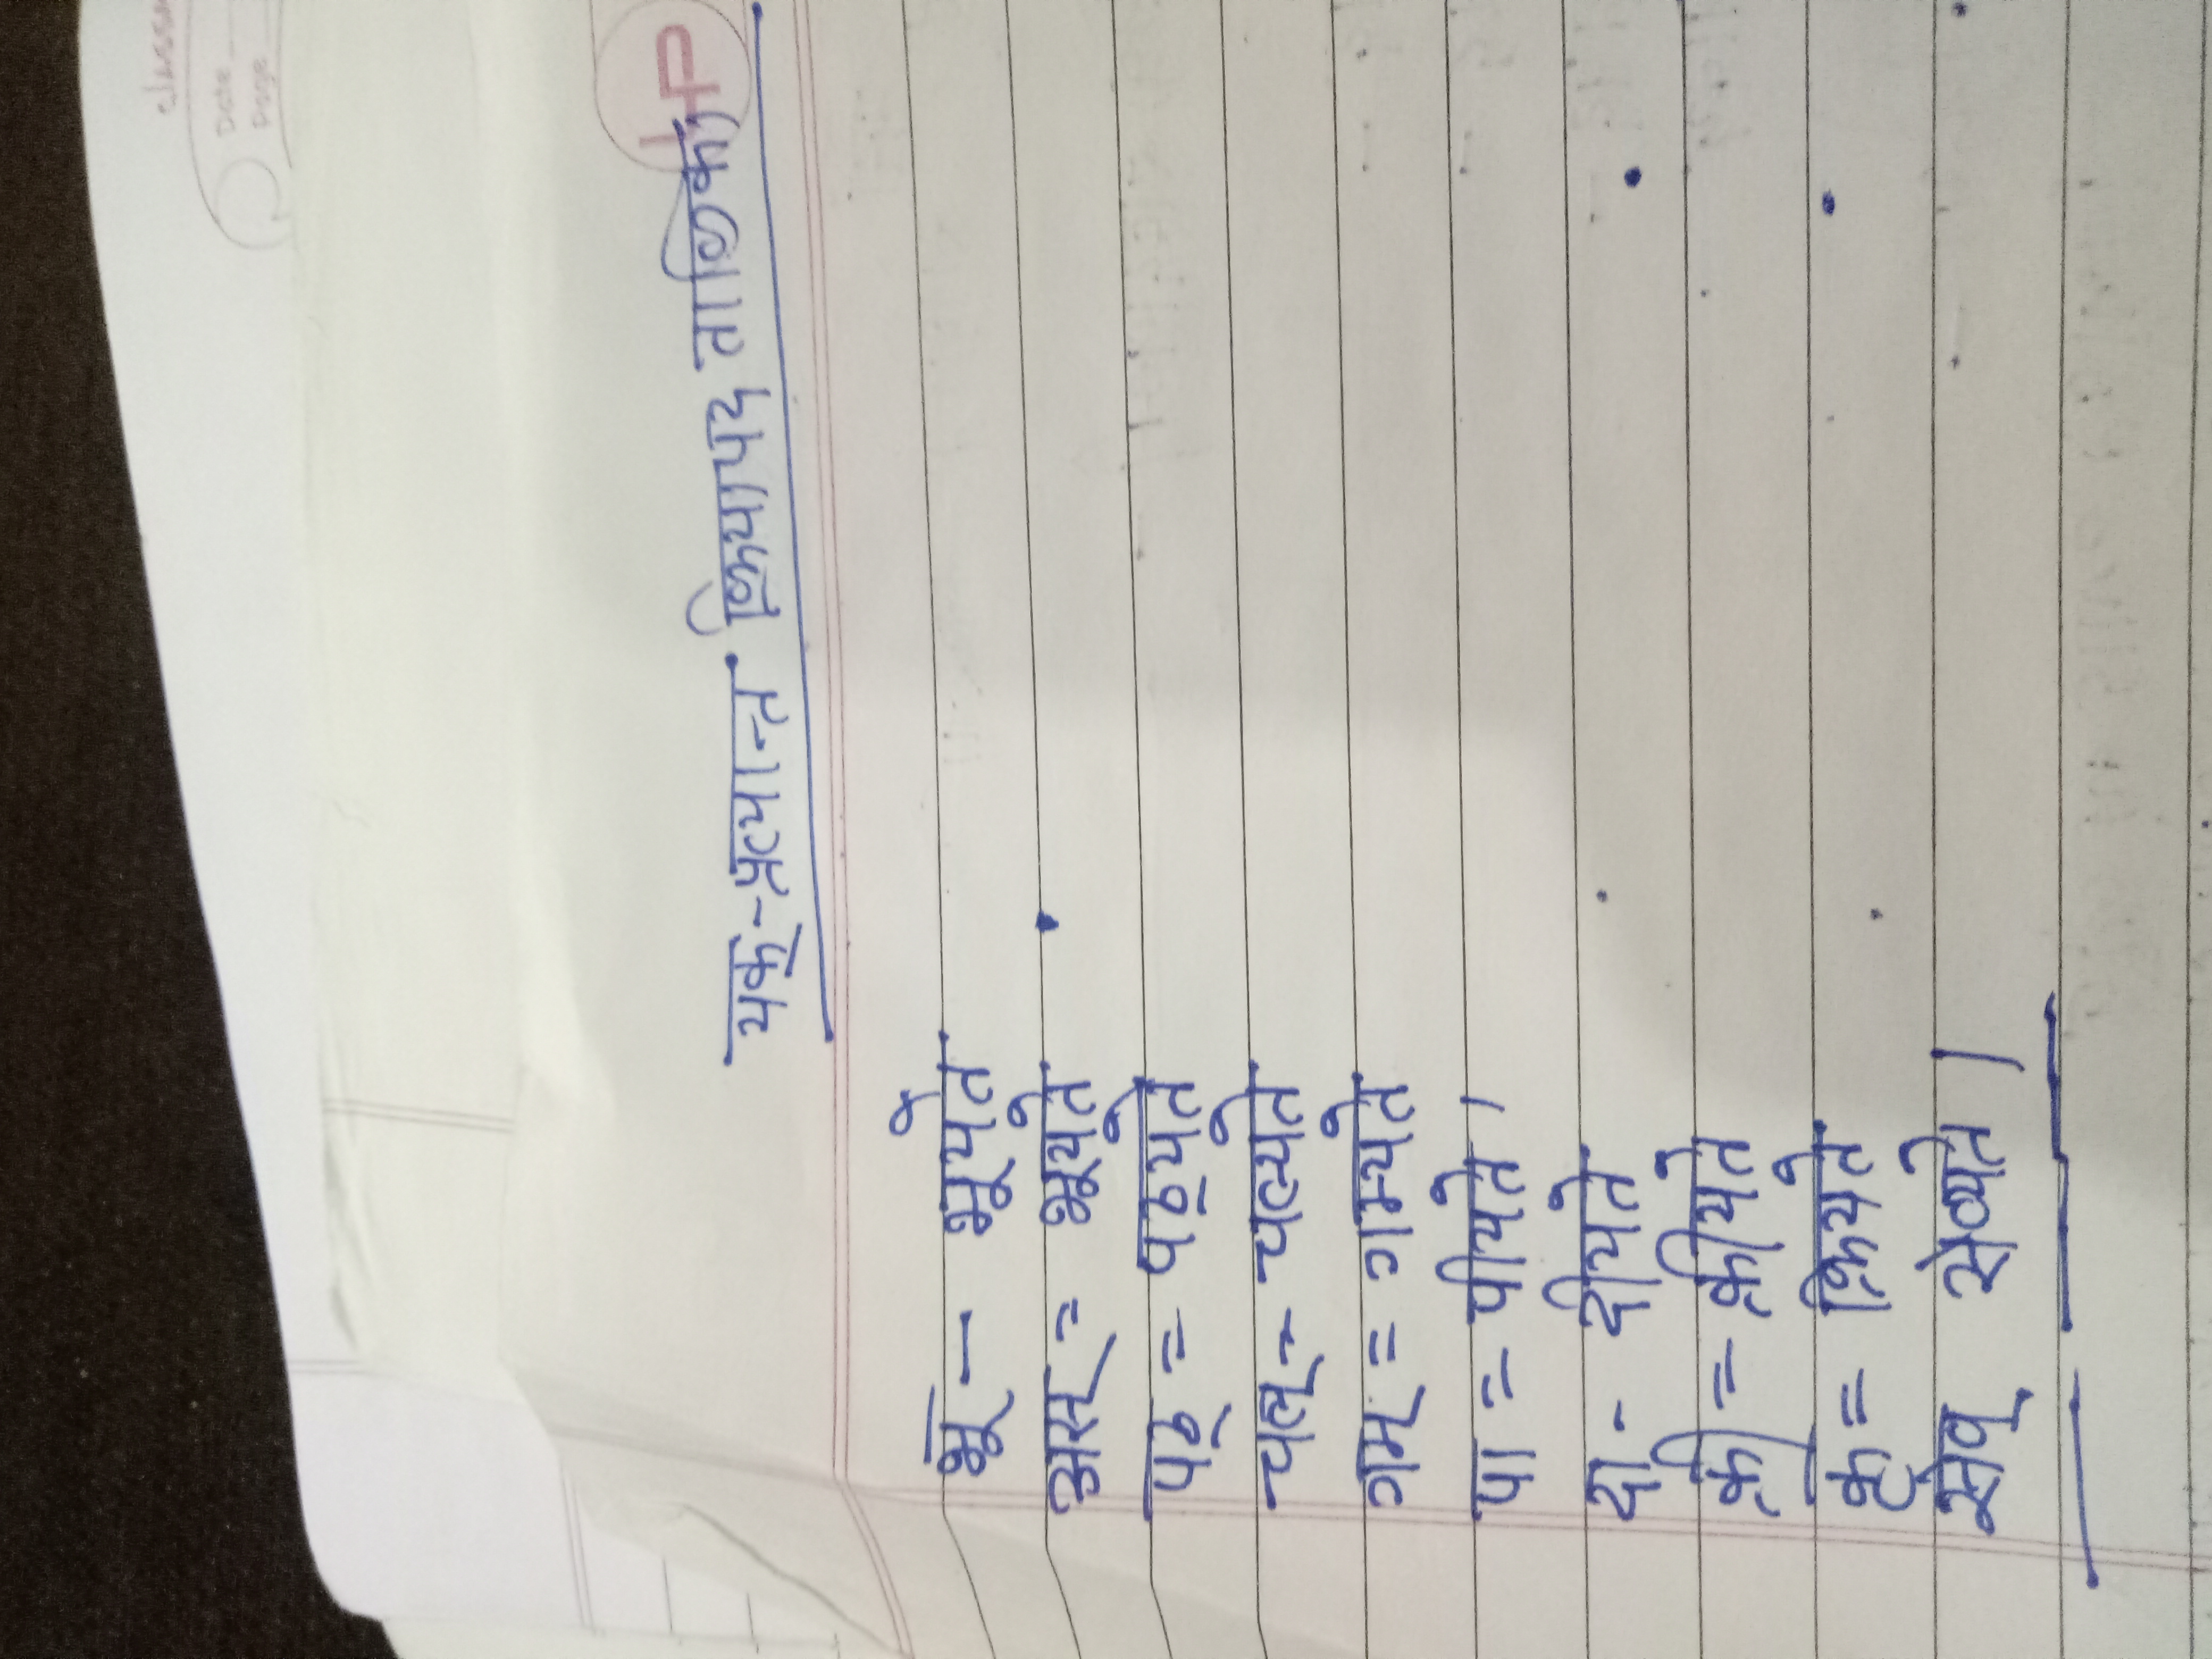 classm
Date
Page
HP
यक्-प्रत्यान्त क्रियापद तालिका
भू - भूयते
अस् = भूयते
पठ् = पठ्यते
चल् - चल्यते
गम् = गम्यते
पा = पीयते।
दा - दीयते
क्री = क्रीयते
कृ = क्रियते
सेव् सेव्यते।